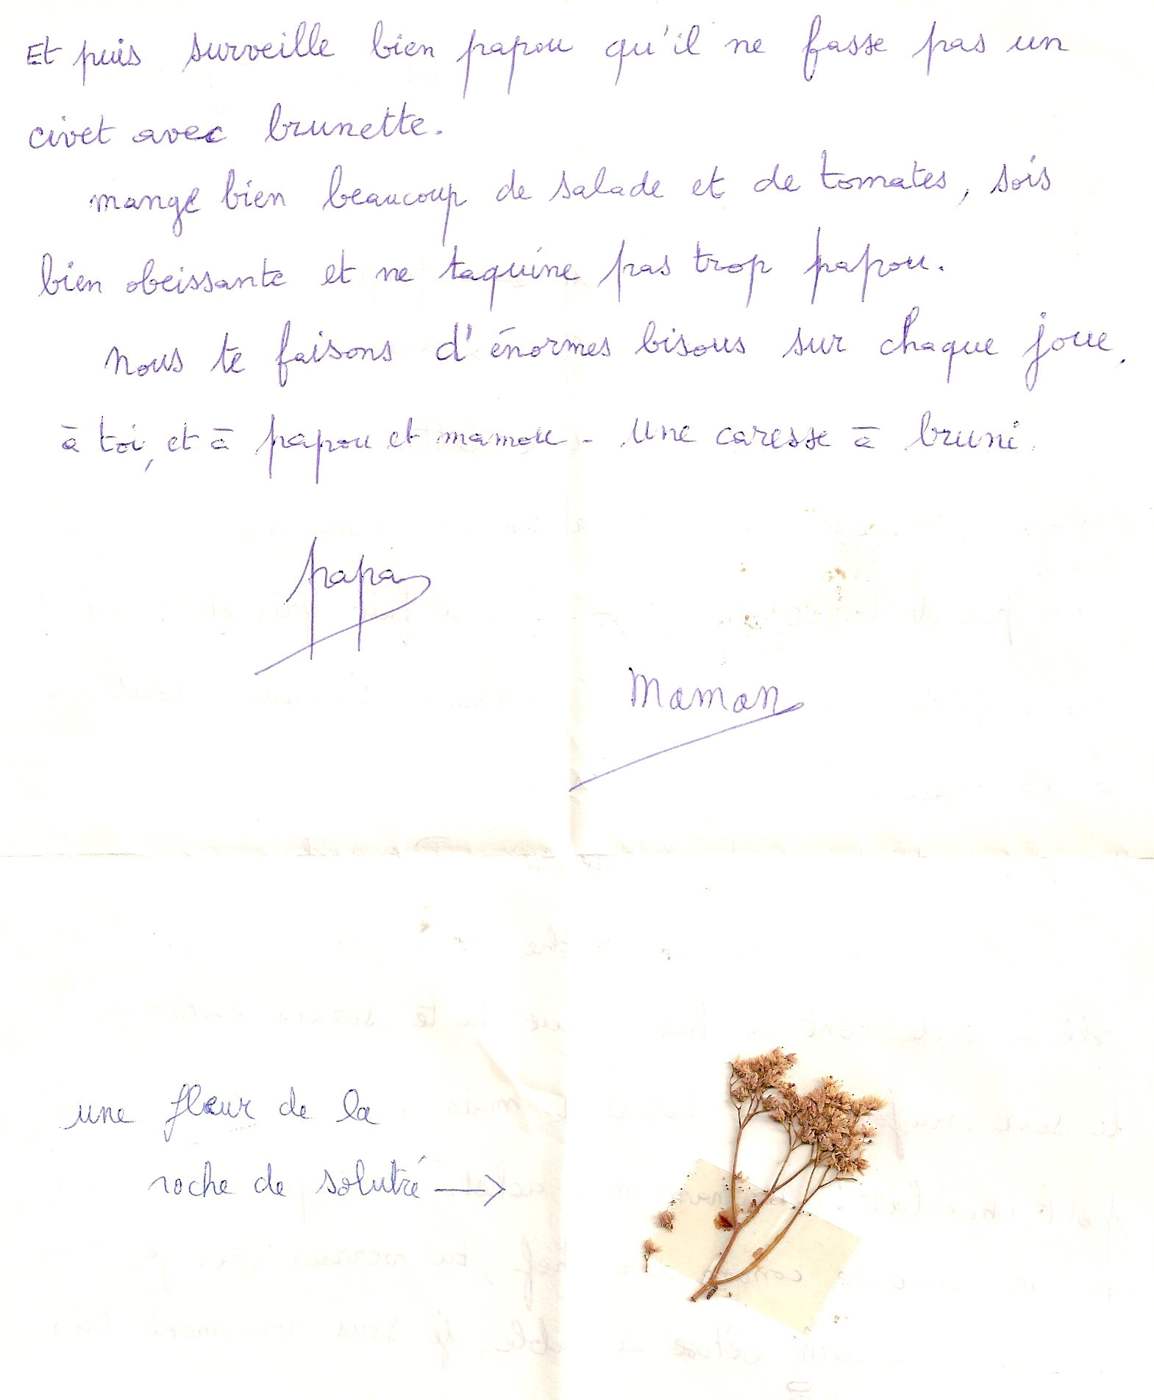 Et puis surveille bien papou qu'il ne fasse pas un
civet avec brunette.
mange bien beaucoup de salade et de tomates, sois
bien obeissante et ne taquine pas trop papou.
Nous te faisons d'énormes bisous sur chaque joue.
à toi, et à papou et mamou - Une caresse à bruni.
papa
Maman
une fleur de la
roche de solutré →